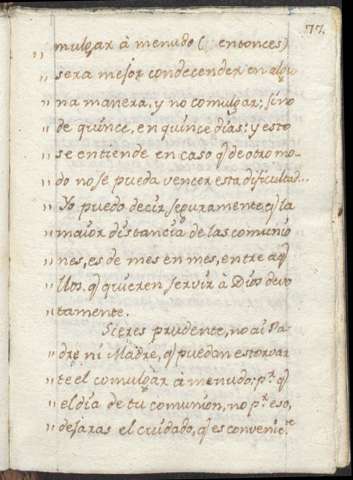 77.
,, mulgar à menudo ( entonces)
,, sera mejor condecender en algu
,, na manera, y no comulgar; sino
,, de quince, en quince dias: y esto
,, se entiende en caso q̃ de otro mo-
,, do no se pueda vencer esta dificultad...
,, Yo puedo decir seguramente q̃ la
,, maior distancia de las comunio
,, nes, es de mes en mes, entre aq̃
,, llos q̃ quieren servir à Dios devo
,, tamente.
Si eres prudente, no ai Pa-
,, dre ni Madre, q̃ puedan estorvar
,, te el comulgar à menudo: pr. q̃
,, el dia de tu comunion, no pr. eso,
,, dejaras el cuidado, q̃ es convenie.te